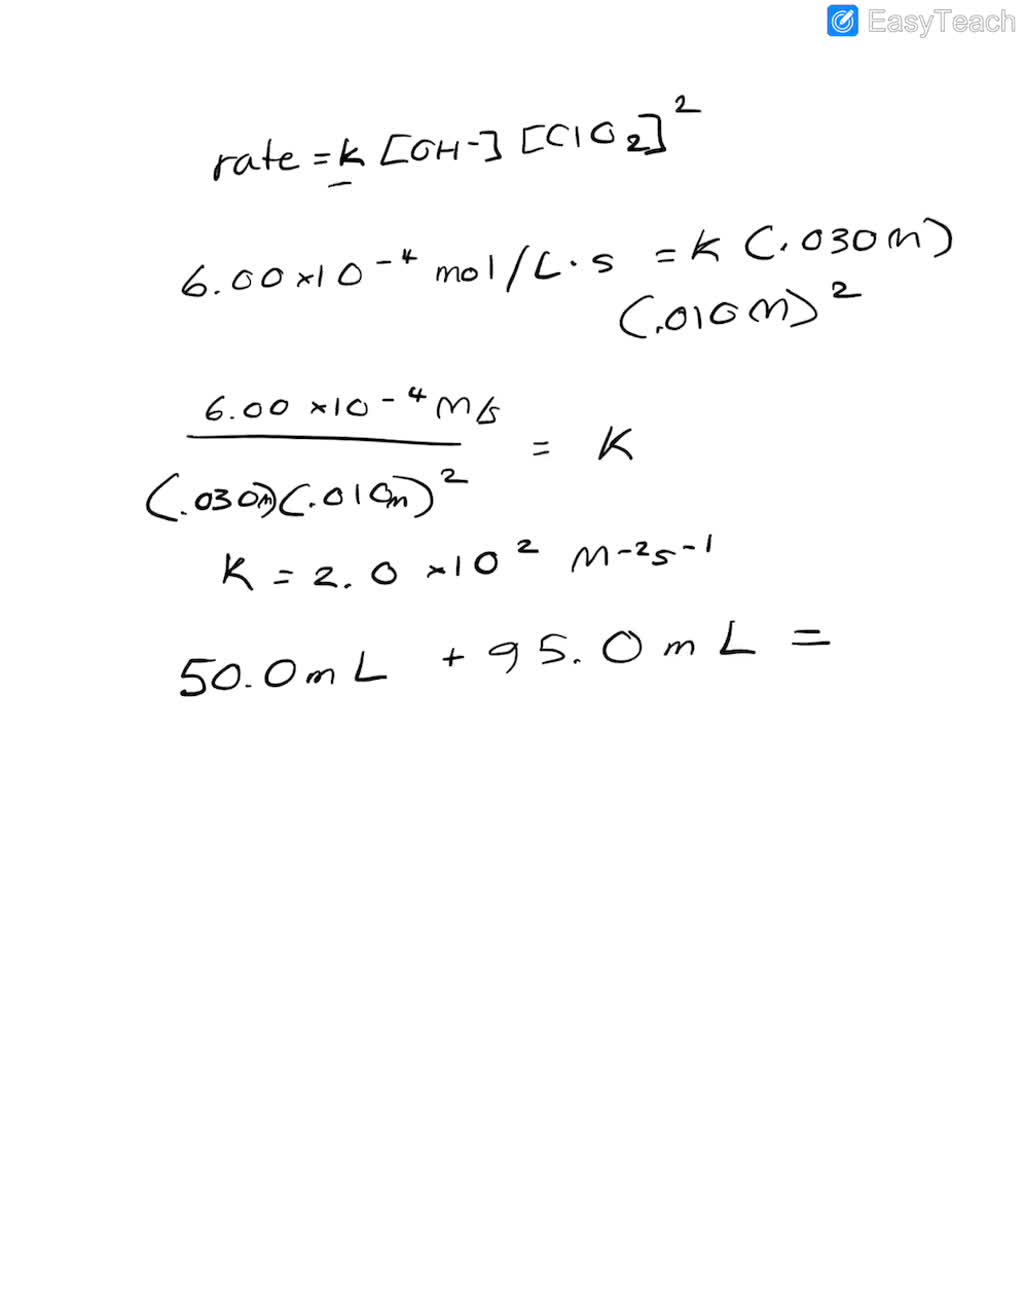 EasyTeach
rate = k [OH-] [ClO2]²
6.00 ×10⁻⁴ mol/L·s = K (.030M)
(.010M)²
6.00 ×10⁻⁴ M/s
(.030M)(.010M)² = K
K = 2.0 ×10² M⁻²s⁻¹
50.0mL + 95.0mL =